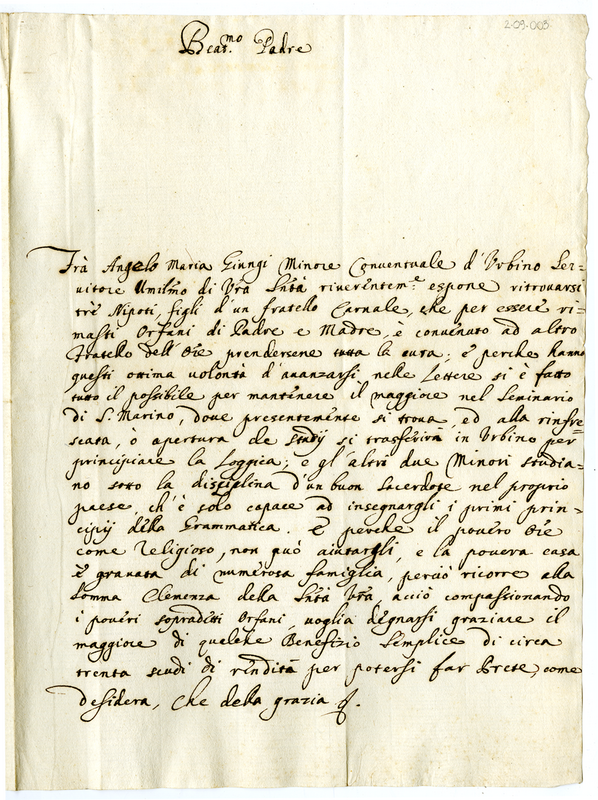 2-09-003
Beat.mo Padre
Frà Angelo Maria Giungi Minore Conventuale d'Urbino Ser-
vitore Umilmo di Vrã Sntà riverentem.e espone ritrovarsi
trè Nipoti, figli d'un fratello Carnale, che per essere ri-
masti Orfani di Padre e Madre, è convenuto ad altro
Fratello dell' Ore prendersene tutta la cura; e perche hanno
questi ottima volontà d'auanzarsi nelle Lettere si è fatto
tutto il possibile per mantenere il maggiore nel Seminario
di S. Marino, doue presentemente si troua, ed alla rinfre-
scata, ò apertura de studij si trasferirà in Urbino per
principiare la Loggica; e gl'altri due Minori studia-
no sotto la disciplina d'un buon Sacerdote nel proprio
paese, ch'è solo capace ad insegnargli i primi prin-
cipij della Grammatica. E perche il pouero Ore
come Religioso, non può aiutargli, e la pouera casa
è grauata di numerosa famiglia, perciò ricorre alla
somma Clemenza della Sntà Vrã, acciò compassionando
i poueri sopradetti Orfani, uoglia degnarsi graziare il
maggiore di qualche Benefizio Semplice di circa
trenta scudi di rendita per potersi far Prete, come
desidera, Che della grazia &.